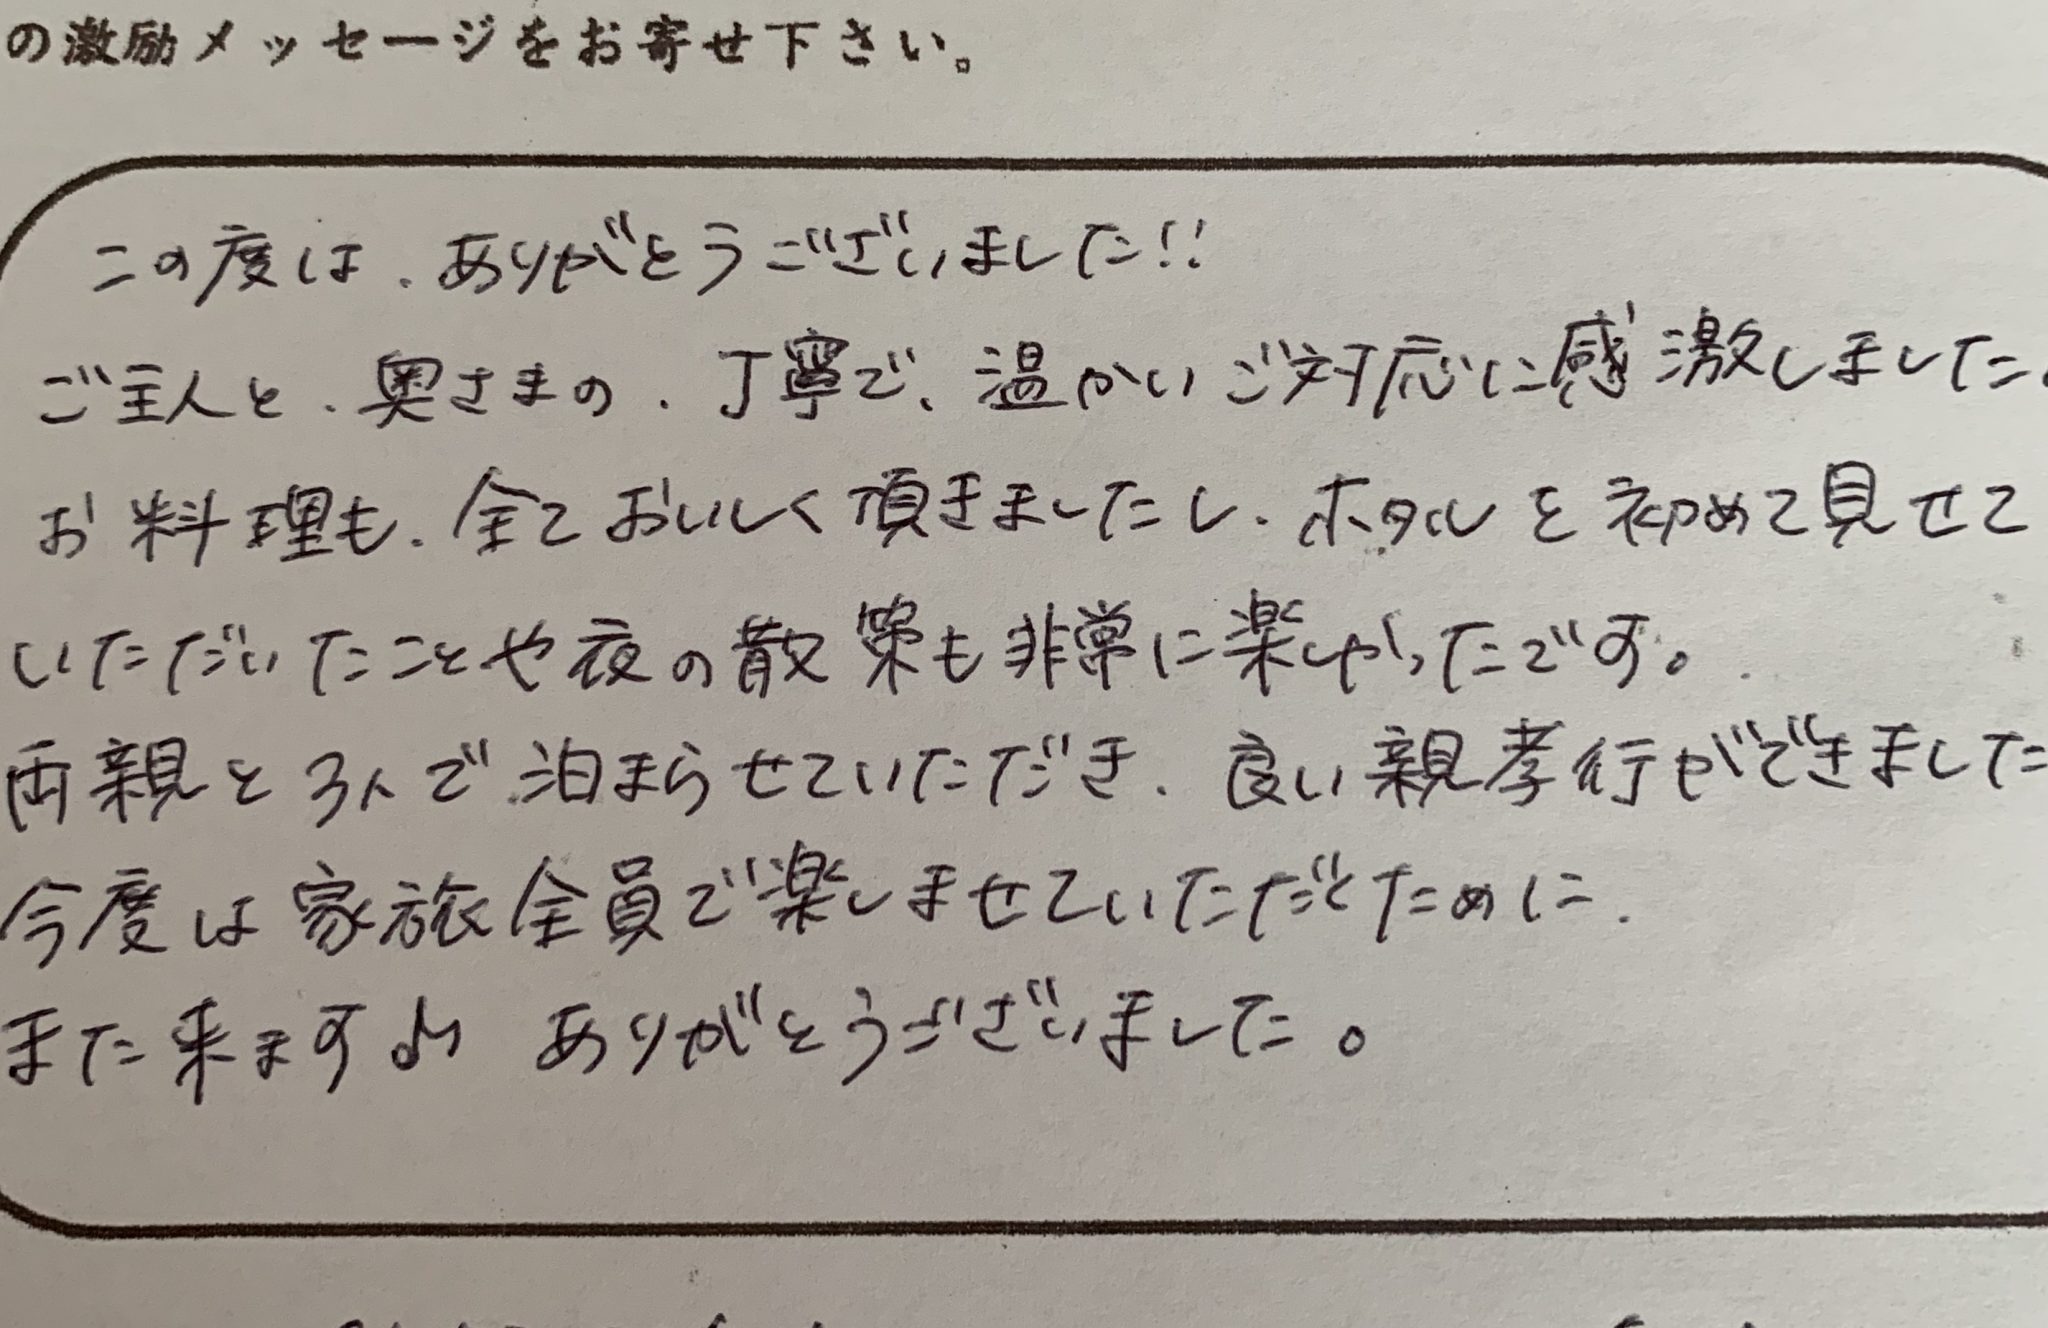 の激励メッセージをお寄せ下さい。
この度は、ありがとうございました!!
ご主人と、奥さまの、丁寧で、温かいご対応に感激しました。
お料理も、全ておいしく頂きましたし、ホタルを初めて見せて
いただいたことや夜の散策も非常に楽しかったです。
両親と3人で泊まらせていただき、良い親孝行ができました
今度は家族全員で楽しませていただくために、
また来ます♪ ありがとうございました。